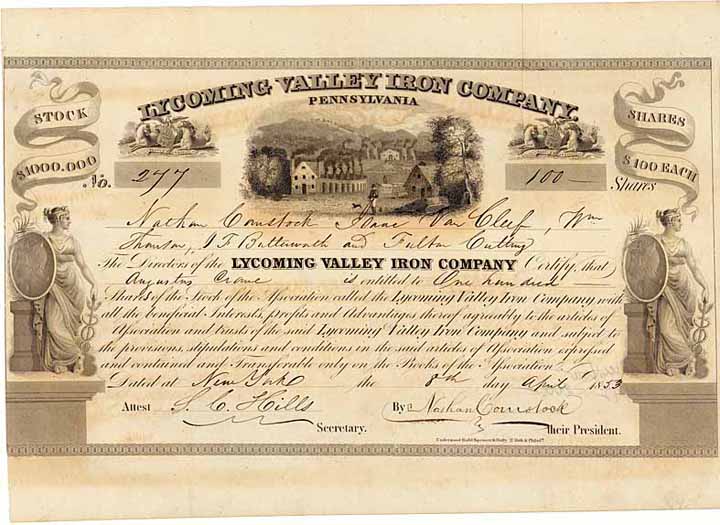 LYCOMING VALLEY IRON COMPANY.
PENNSYLVANIA
STOCK
$1000.000
SHARES
$100 EACH
No. 277
100 Shares
Nathan Comstock Isaac Van Cleef, Wm
Thomson, J F Butterworth and Fulton Cutting
The Directors of the LYCOMING VALLEY IRON COMPANY Certify, that
Augustus Crane is entitled to One hundred
Shares of the Stock of the Association called the Lycoming Valley Iron Company with
all the beneficial Interests, profits and Advantages thereof agreeably to the articles of
Association and trusts of the said Lycoming Valley Iron Company and subject to
the provisions, stipulations and conditions in the said articles of Association expressed
and contained and Transferable only on the Books of the Association
Dated at New York the 8th day April 1853
Attest S. C. Hills By Nathan Comstock
Secretary. Their President.